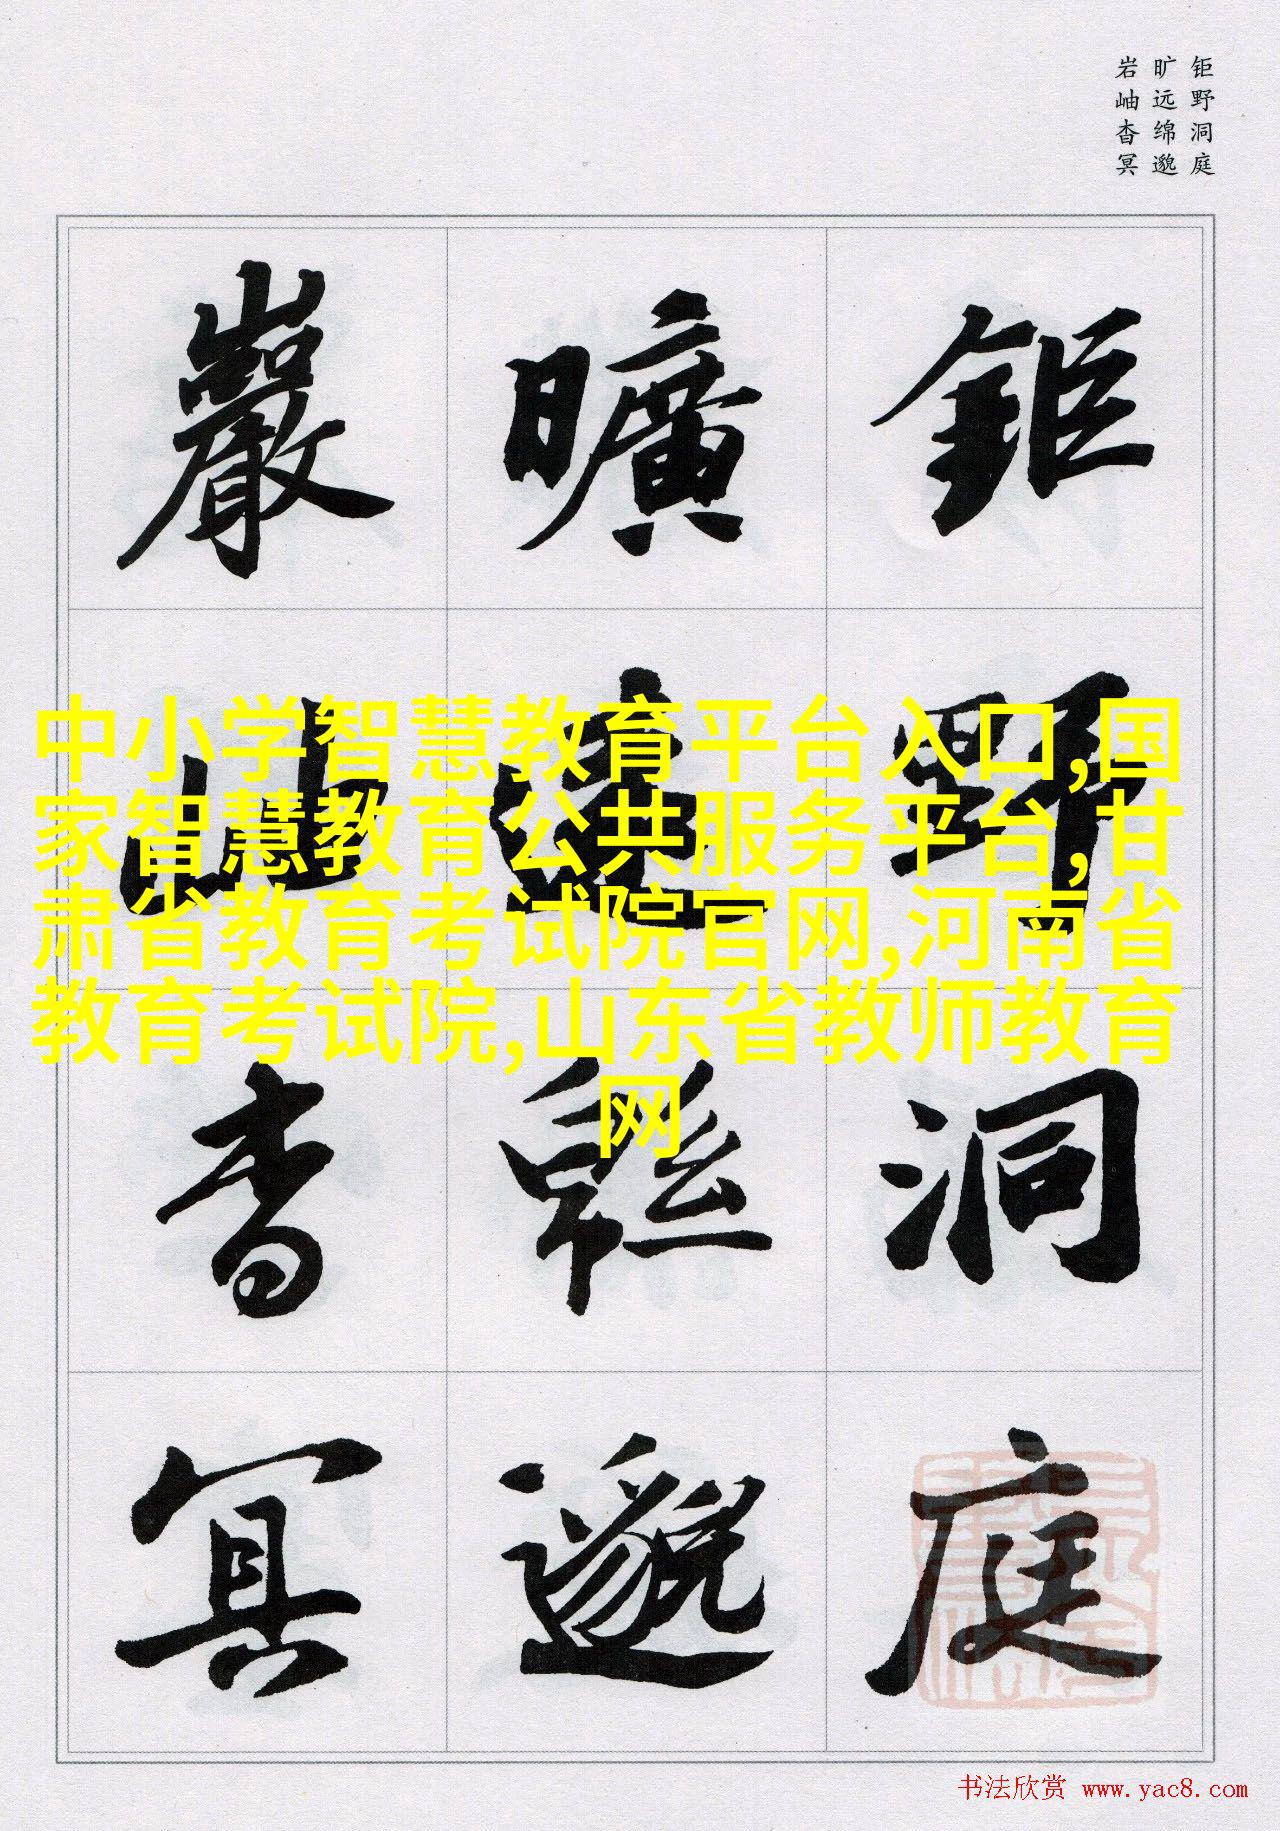 钜野洞庭
旷远绵邈
岩岫杳冥
鉅野洞庭
曠遠緜邈
巖岫杳冥
中小学智慧教育平台入口,国
家智慧教育公共服务平台,甘
肃省教育考试院官网,河南省
教育考试院,山东省教师教育
网
书法欣赏 www.yac8.com